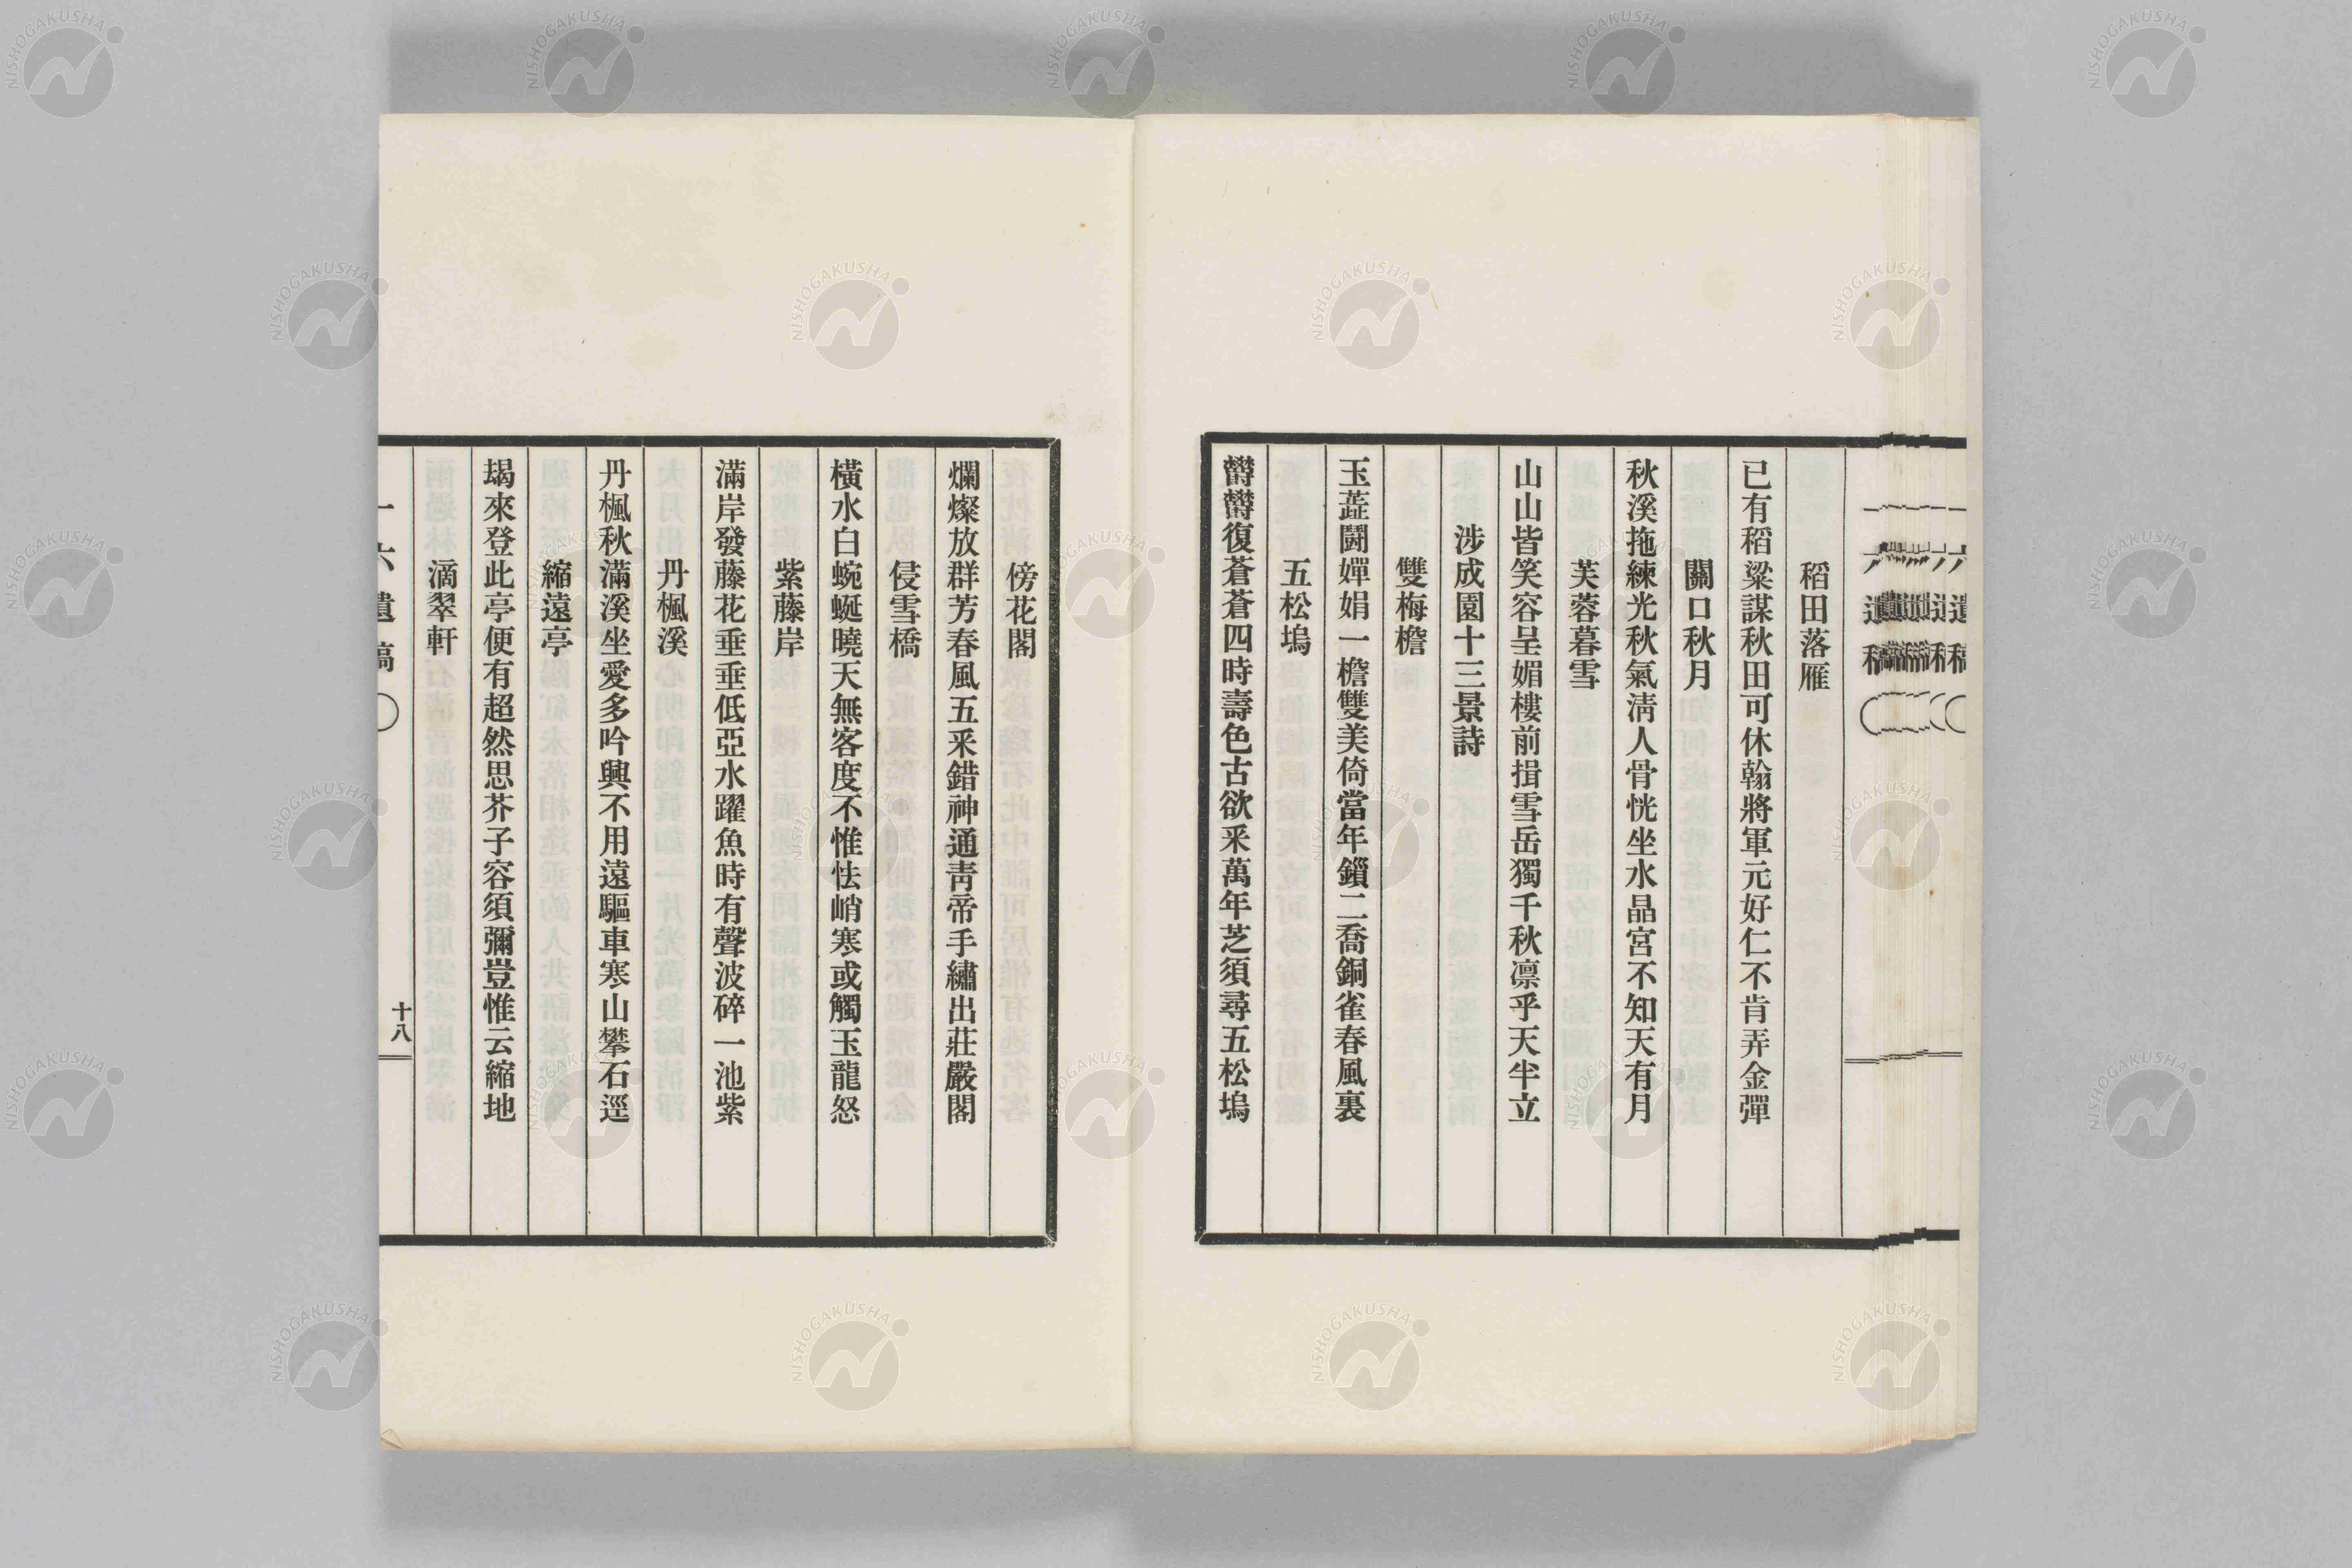 稻田落雁
已有稻粱謀秋田可休翰將軍元好仁不肯弄金彈
關口秋月
秋溪拖練光秋氣淸人骨恍坐水晶宮不知天有月
芙蓉暮雪
山山皆笑容呈媚樓前揖雪岳獨千秋凛乎天半立
涉成園十三景詩
雙梅檐
玉蘂鬪嬋娟一檐雙美倚當年鎖二喬銅雀春風裏
五松塢
欝欝復蒼蒼四時壽色古欲釆萬年芝須尋五松塢
傍花閣
爛燦放群芳春風五釆錯神通靑帝手繡出莊嚴閣
侵雪橋
横水白蜿蜒曉天無客度不惟怯峭寒或觸玉龍怒
紫藤岸
滿岸發藤花垂垂低亞水躍魚時有聲波碎一池紫
丹楓溪
丹楓秋滿溪坐愛多吟興不用遠驅車寒山攀石逕
縮遠亭
朅來登此亭便有超然思芥子容須彌豈惟云縮地
滴翠軒
一六遺稿
十八
NISHOGAKUSHA